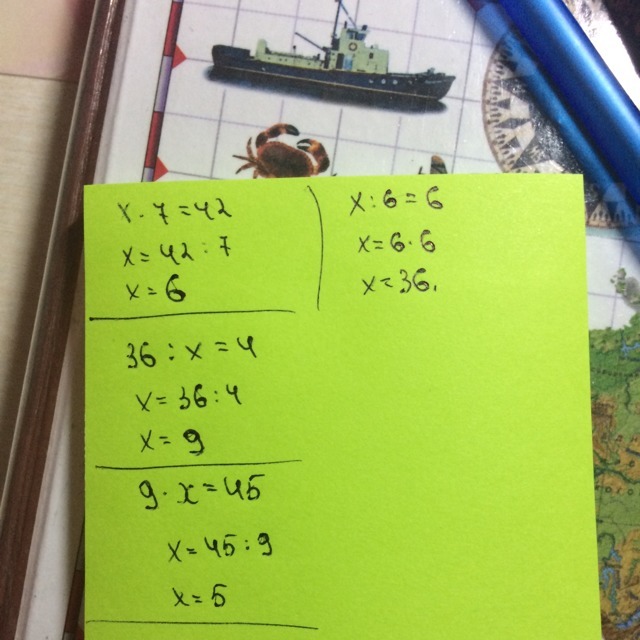 x · 7 = 42
x = 42 : 7
x = 6
36 : x = 4
x = 36 : 4
x = 9
9 · x = 45
x = 45 : 9
x = 5
x : 6 = 6
x = 6 · 6
x = 36.